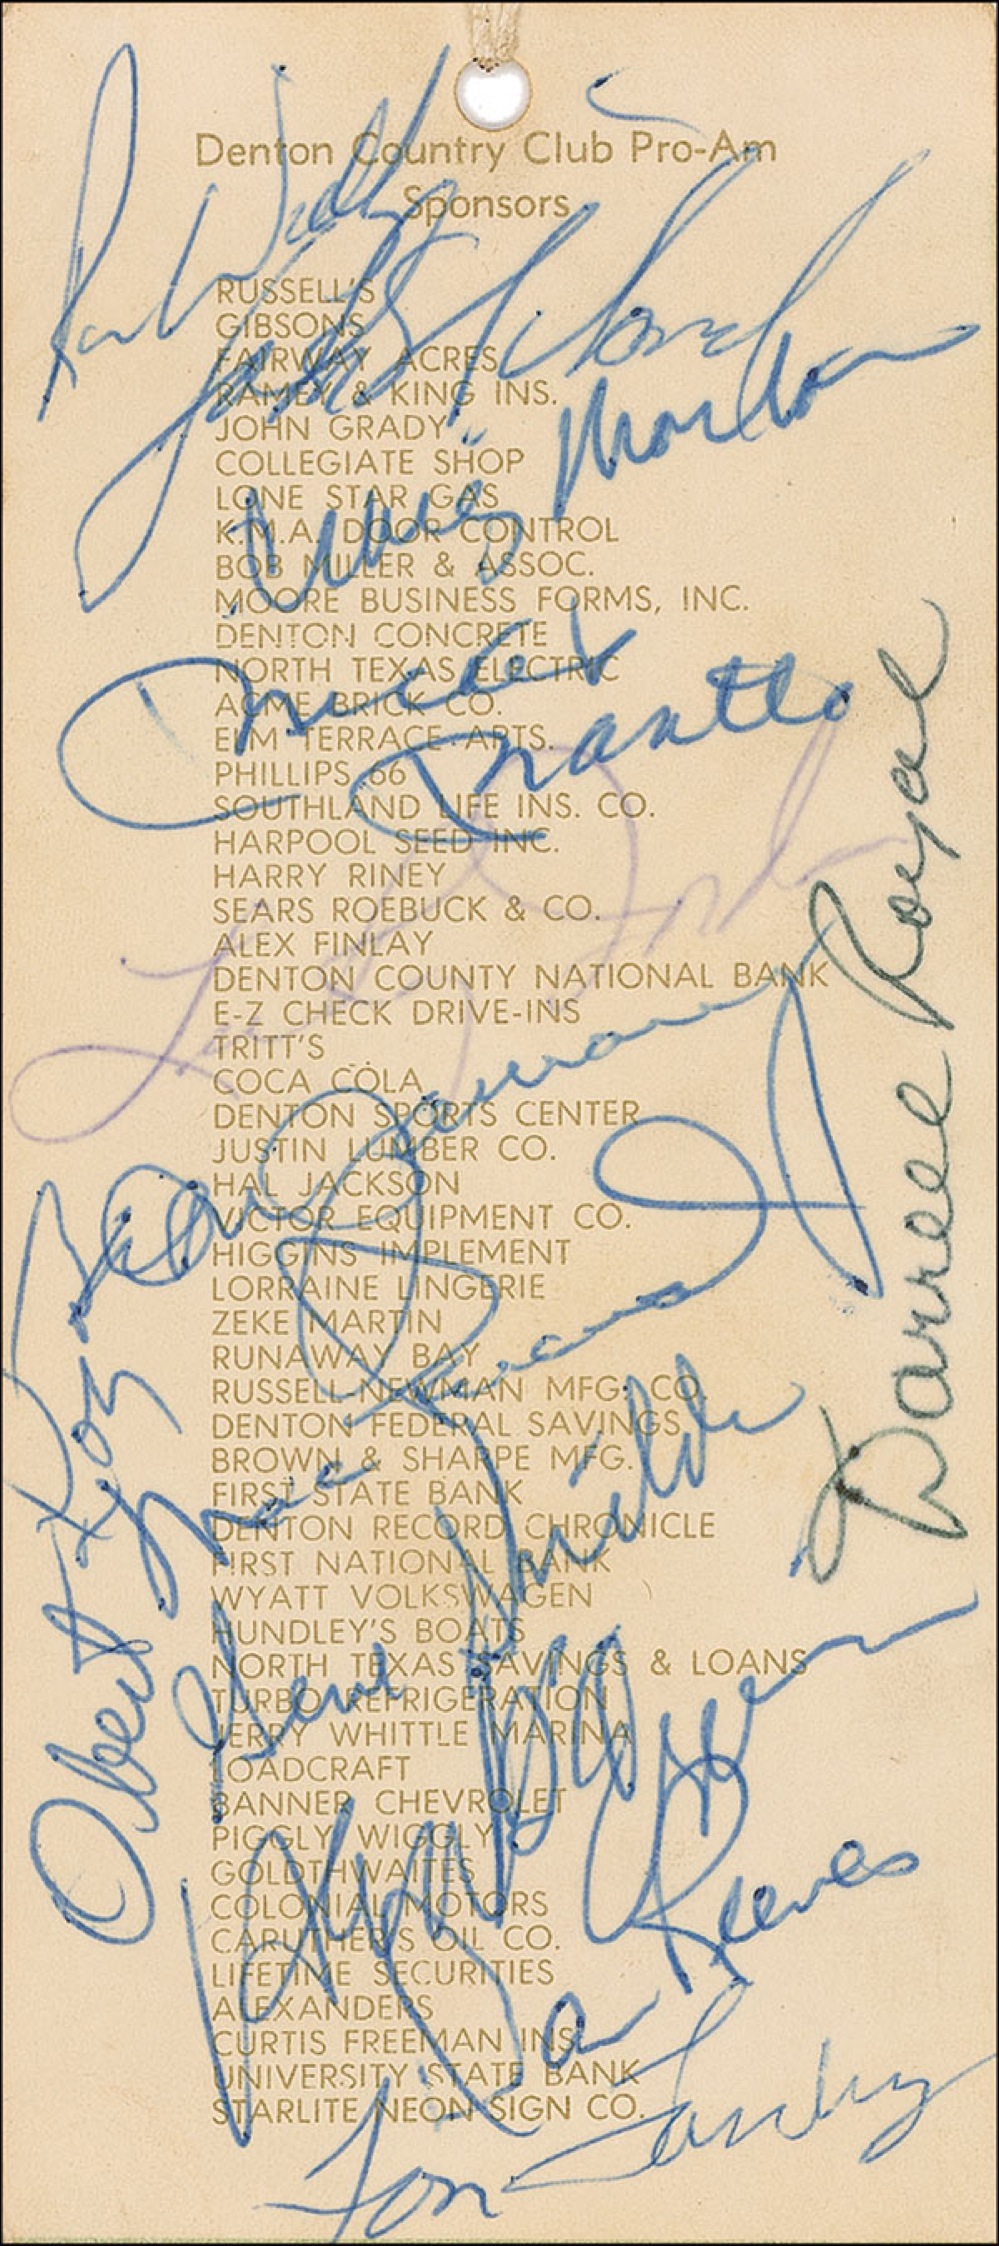 Denton Country Club Pro-Am
Sponsors
RUSSELL'S
GIBSONS
FAIRWAY ACRES
RAMEY & KING INS.
JOHN GRADY
COLLEGIATE SHOP
LONE STAR GAS
K.M.A. DOOR CONTROL
BOB MILLER & ASSOC.
MOORE BUSINESS FORMS, INC.
DENTON CONCRETE
NORTH TEXAS ELECTRIC
ACME BRICK CO.
ELM TERRACE APTS.
PHILLIPS 66
SOUTHLAND LIFE INS. CO.
HARPOOL SEED INC.
HARRY RINEY
SEARS ROEBUCK & CO.
ALEX FINLAY
DENTON COUNTY NATIONAL BANK
E-Z CHECK DRIVE-INS
TRITT'S
COCA COLA
DENTON SPORTS CENTER
JUSTIN LUMBER CO.
HAL JACKSON
VICTOR EQUIPMENT CO.
HIGGINS IMPLEMENT
LORRAINE LINGERIE
ZEKE MARTIN
RUNAWAY BAY
RUSSELL-NEWMAN MFG. CO.
DENTON FEDERAL SAVINGS
BROWN & SHARPE MFG.
FIRST STATE BANK
DENTON RECORD CHRONICLE
FIRST NATIONAL BANK
WYATT VOLKSWAGEN
HUNDLEY'S BOATS
NORTH TEXAS SAVINGS & LOANS
TURBO REFRIGERATION
JERRY WHITTLE MARINA
LOADCRAFT
BANNER CHEVROLET
PIGGLY WIGGLY
GOLDTHWAITES
COLONIAL MOTORS
CARUTHERS OIL CO.
LIFETIME SECURITIES
ALEXANDERS
CURTIS FREEMAN INS.
UNIVERSITY STATE BANK
STARLITE NEON SIGN CO.
Mickey Mantle
Darrell Royal
Dan Reeves
Tom Landry